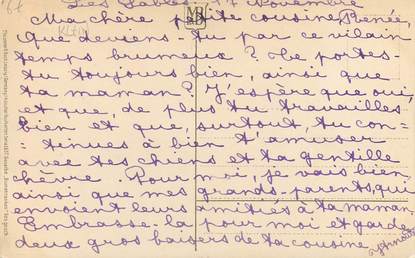 Les Sables 17 Novembre
Ma chère petite cousine Renée,
Que deviens-tu par ce vilain
temps brumeux ? Te portes-
tu toujours bien, ainsi que
ta maman ? J'espère que oui,
et que, de plus, tu travailles
bien et que, surtout, tu con=
=tinues à bien t'amuser
avec tes chiens et ta gentille
chèvre. Pour moi, je vais bien
ainsi que mes grands-parents, qui
envoient leurs amitiés à ta maman
Embrasse-la pour moi et garde
deux gros baisers de ta cousine